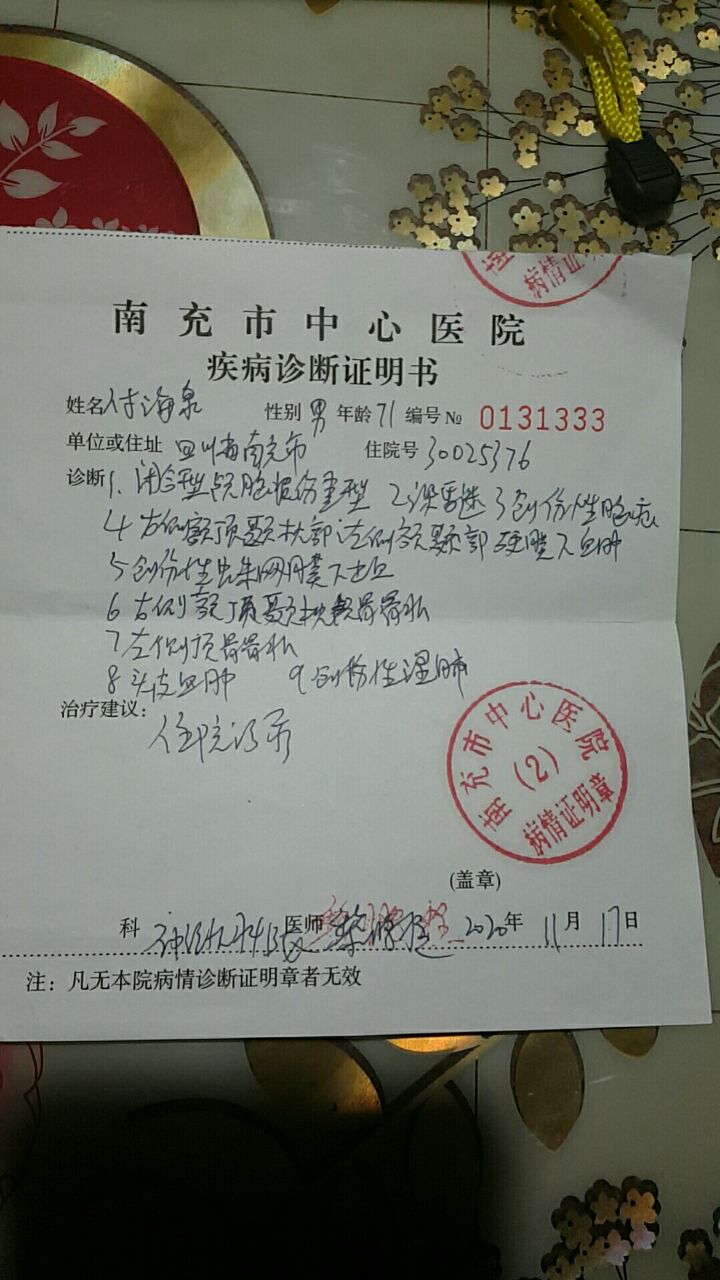 病情证明
南充市中心医院
疾病诊断证明书
姓名 付海泉 性别 男 年龄 71 编号№ 0131333
单位或住址 四川省南充市 住院号 30025376
诊断 1. 闭合型颅脑损伤重型 2 深昏迷 3 创伤性脑疝
4 右侧额顶颞枕部 左侧额颞部硬膜下血肿
5 创伤性蛛网膜下出血
6 右侧额顶颞枕骨骨折
7 左侧顶骨骨折
8 头皮血肿 9 创伤性湿肺
治疗建议:
住院治疗
南充市中心医院
(2)
病情证明章
(盖章)
科 医师 2020年 11月 17日
注:凡无本院病情诊断证明章者无效